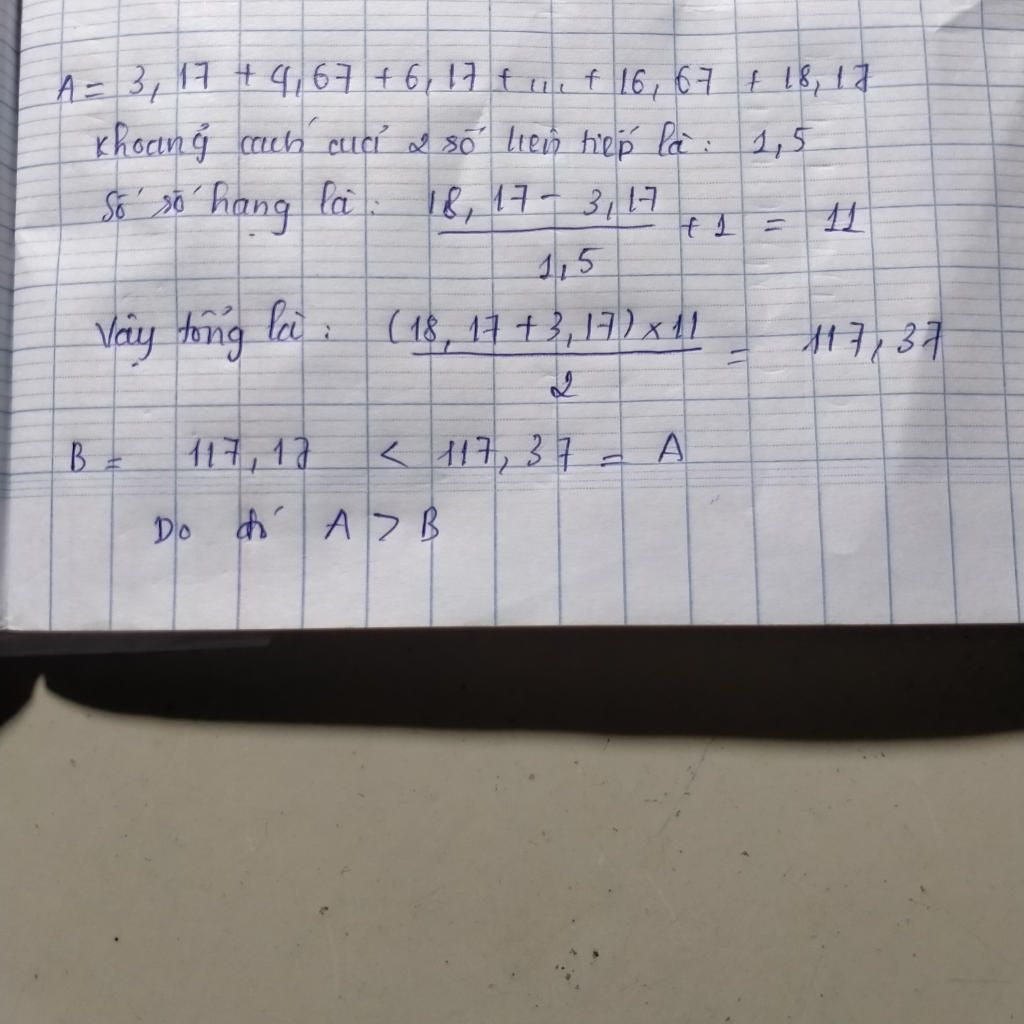 A = 3,17 + 4,67 + 6,17 + ... + 16,67 + 18,17
Khoảng cách của 2 số liên tiếp là: 1,5
Số số hạng là: (18,17 - 3,17)/1,5 + 1 = 11
Vậy tổng là: ((18,17 + 3,17) x 11)/2 = 117,37
B = 117,17 < 117,37 = A
Do đó A > B